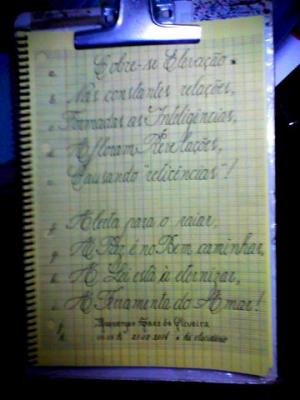 a. Sobre-se Elevação.
b. Nas constantes relações,
c. Formadas as Inteligências,
d. Afloram Revelações,
e. Causando "reticências"!
Alerta para o raiar,
g. A Paz é no Bem caminhar,
h. A Lei está a eternizar,
i. A Ferramenta do Amar!
de Oliveira